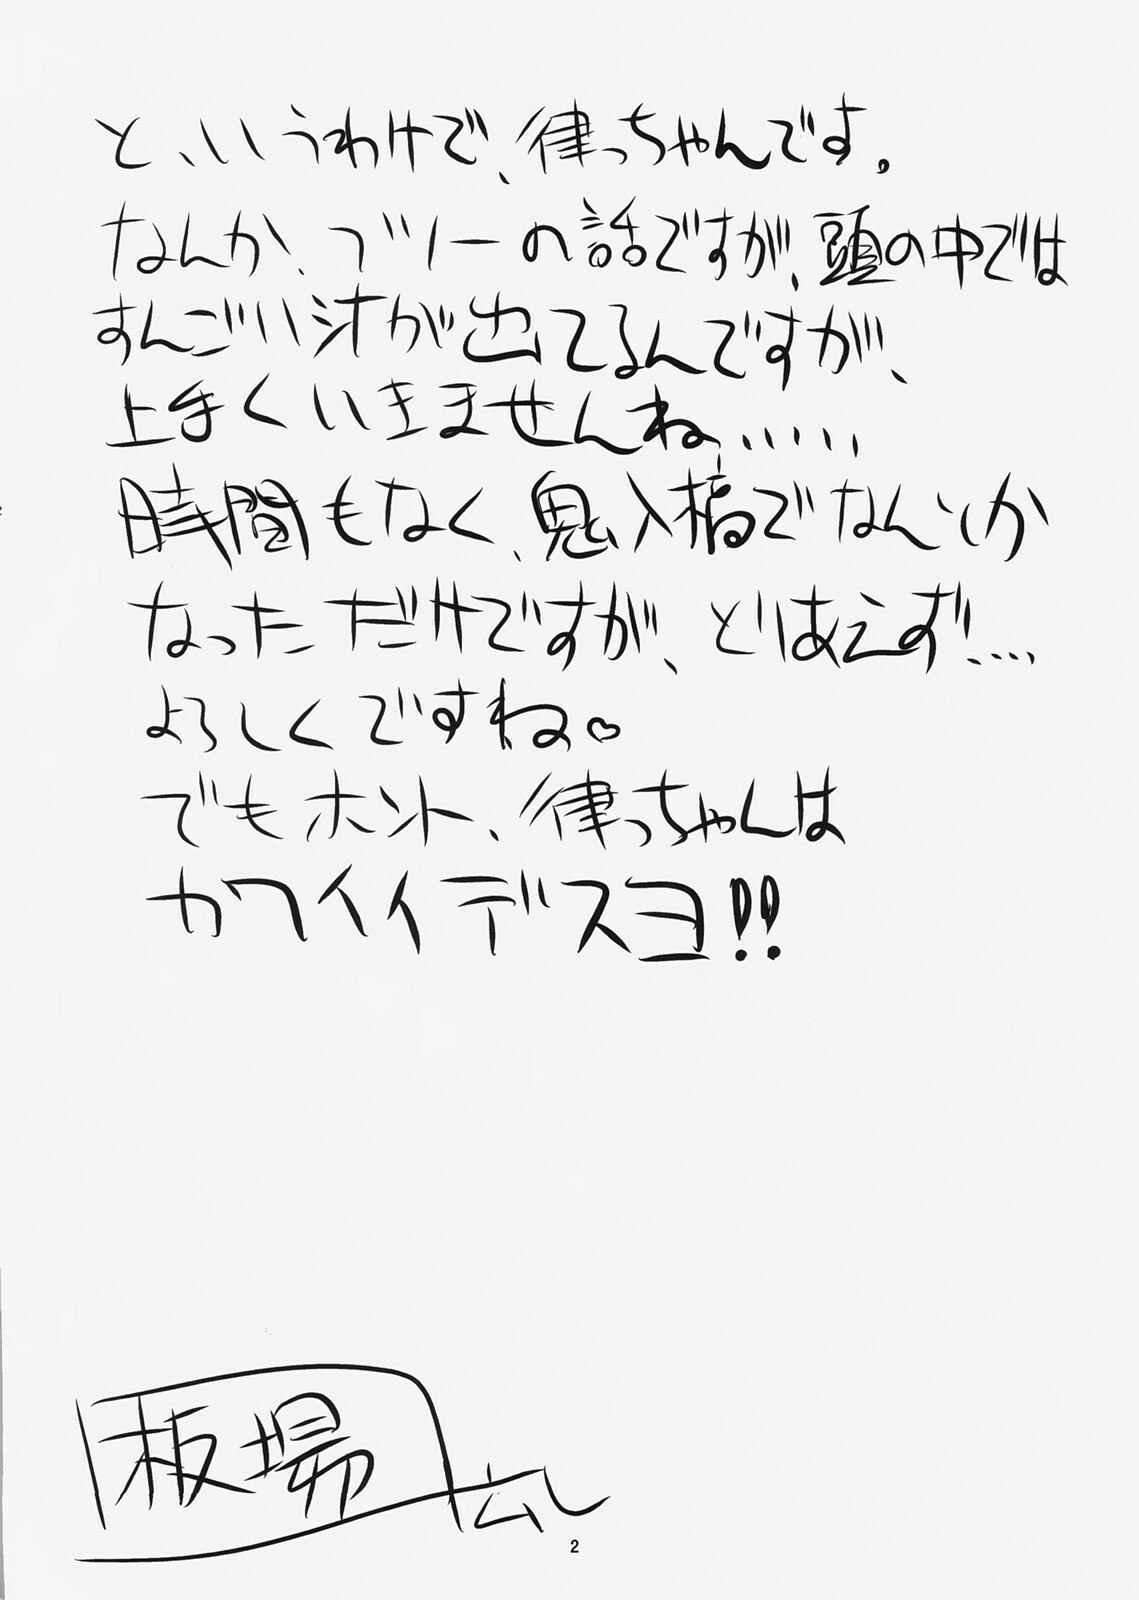 と、いうわけで、律っちゃんです。
なんか、ブソーの話ですが、頭の中では
すんごい汁が出てるんですが、
上手くいきませんね……
時間もなく、鬼入稿でなんいか
なっただけですが、とりあえず!…
よろしくですね♡
でもホント、律っちゃんは
カワイイデスヨ!!
板場広し
2